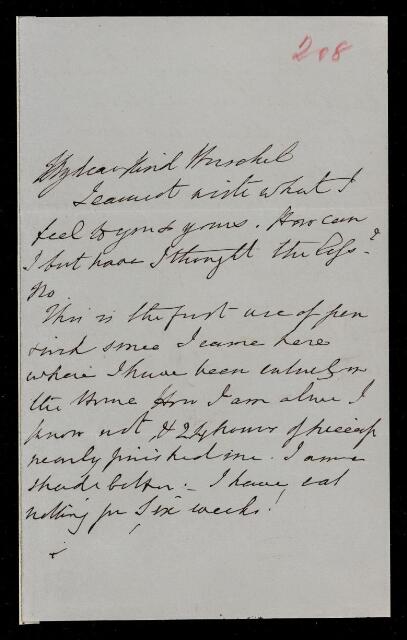 208
My dear kind Herschel
I cannot write what I
feel to you & yours. How can
I but have I thought the less ?
No
This is the first use of pen
& ink since I came here
where I have been entirely in
the House How I am alive I
know not, & 24 hours of hiccup
nearly finished me. I am a
shade better - I have eat
nothing for Six weeks!
&